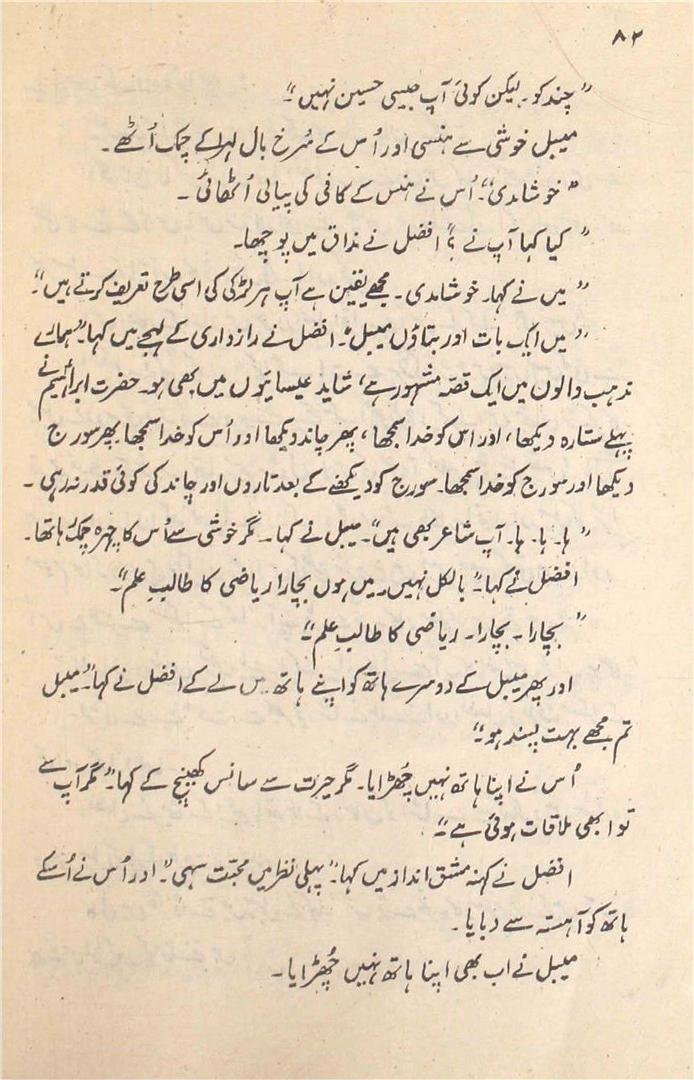 ۸۲
"چند کو۔ لیکن کوئی آپ جیسی حسین نہیں"۔
میبل خوشی سے ہنسی اور اُس کے سُرخ بال لہرا کے چمک اُٹھے۔
"خوشامدی"۔ اُس نے ہنس کے کافی کی پیالی اُٹھائی۔
"کیا کہا آپ نے؟" افضل نے مذاق میں پوچھا۔
"میں نے کہا۔ خوشامدی۔ مجھے یقین ہے آپ ہر لڑکی کی اسی طرح تعریف کرتے ہیں"۔
"میں ایک بات اور بتاؤں میبل"۔ افضل نے رازداری کے لہجے میں کہا۔ "ہمارے
مذہب والوں میں ایک قصّہ مشہور ہے، شاید عیسایئوں میں بھی ہو۔ حضرت ابراہیم نے
پہلے ستارہ دیکھا، اور اس کو خدا سمجھا، پھر چاند دیکھا اور اُس کو خدا سمجھا پھر سورج
دیکھا اور سورج کو خدا سمجھا۔ سورج کو دیکھنے کے بعد تاروں اور چاند کی کوئی قدر نہ رہی۔
"ہا۔ ہا۔ ہا۔ آپ شاعر بھی ہیں"۔ میبل نے کہا۔ مگر خوشی سے اُس کا چہرہ چمک رہا تھا۔
افضل نے کہا۔ "بالکل نہیں۔ میں ہوں بچارا ریاضی کا طالبِ علم"۔
"بچارا۔ بچارا۔ ریاضی کا طالبِ علم"۔
اور پھر میبل کے دوسرے ہاتھ کو اپنے ہاتھ میں لے کے افضل نے کہا۔ "میبل
تم مجھے بہت پسند ہو"۔
اُس نے اپنا ہاتھ نہیں چُھڑایا۔ مگر حیرت سے سانس کھینچ کے کہا۔ "مگر آپ سے
تو ابھی ملاقات ہوئی ہے"۔
افضل نے کہنہ مشق انداز میں کہا۔ "پہلی نظر میں محبّت سہی"۔ اور اُس نے اُسکے
ہاتھ کو آہستہ سے دبایا۔
میبل نے اب بھی اپنا ہاتھ نہیں چُھڑایا۔